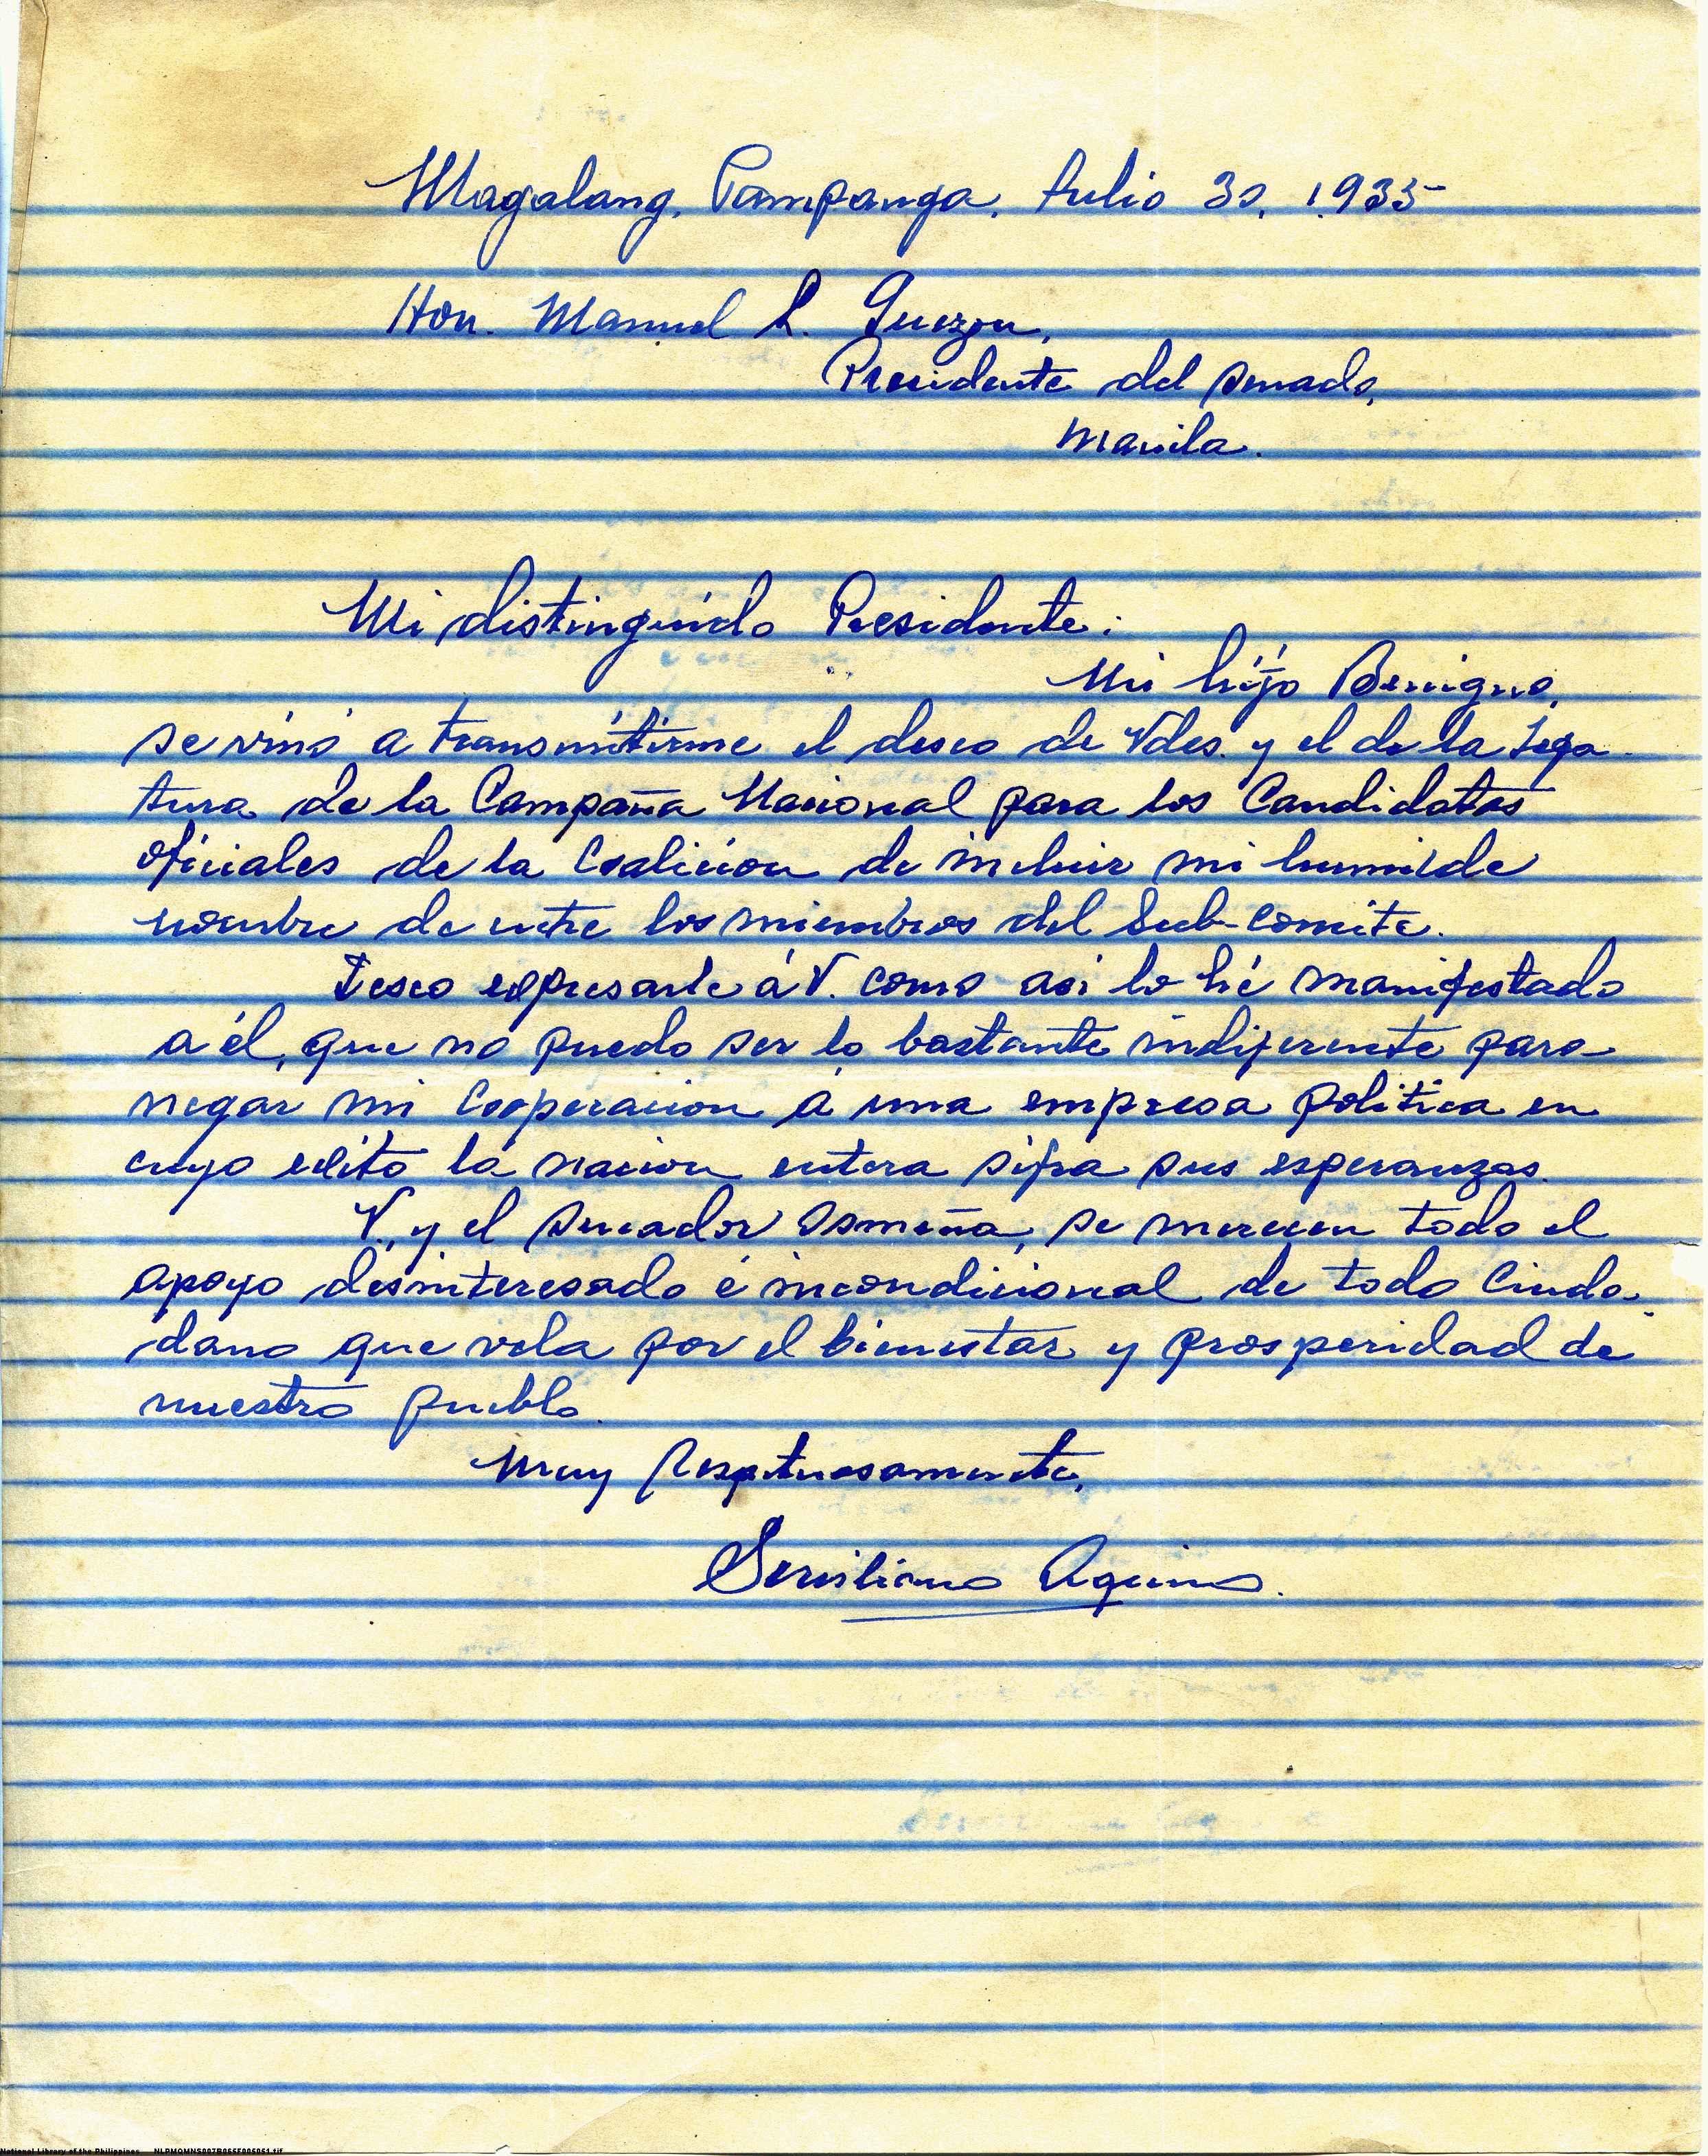 Magalang, Pampanga, Julio 30, 1935
Hon. Manuel L. Quezon,
Presidente del Senado,
Manila.
Mi distinguido Presidente:
Mi hijo Benigno,
se vino a transmitirme el deseo de Vdes. y el de la Jefa
tura de la Campaña Nacional para los Candidatos
oficiales de la Coalicion de incluir mi humilde
nombre de entre los miembros del Sub-comite.
Deseo expresarle á V. como asi lo hé manifestado
a él, que no puedo ser lo bastante indiferente para
negar mi Cooperacion á una empresa politica en
cuyo exito la nacion entera sifra sus esperanzas.
V., y el Senador Osmeña, se merecen todo el
apoyo desinteresado é incondicional de todo Ciuda-
dano que vela por el bienestar y prosperidad de
nuestro pueblo.
Muy Respetuosamente,
Serviliano Aquino.
National Library of the Philippines